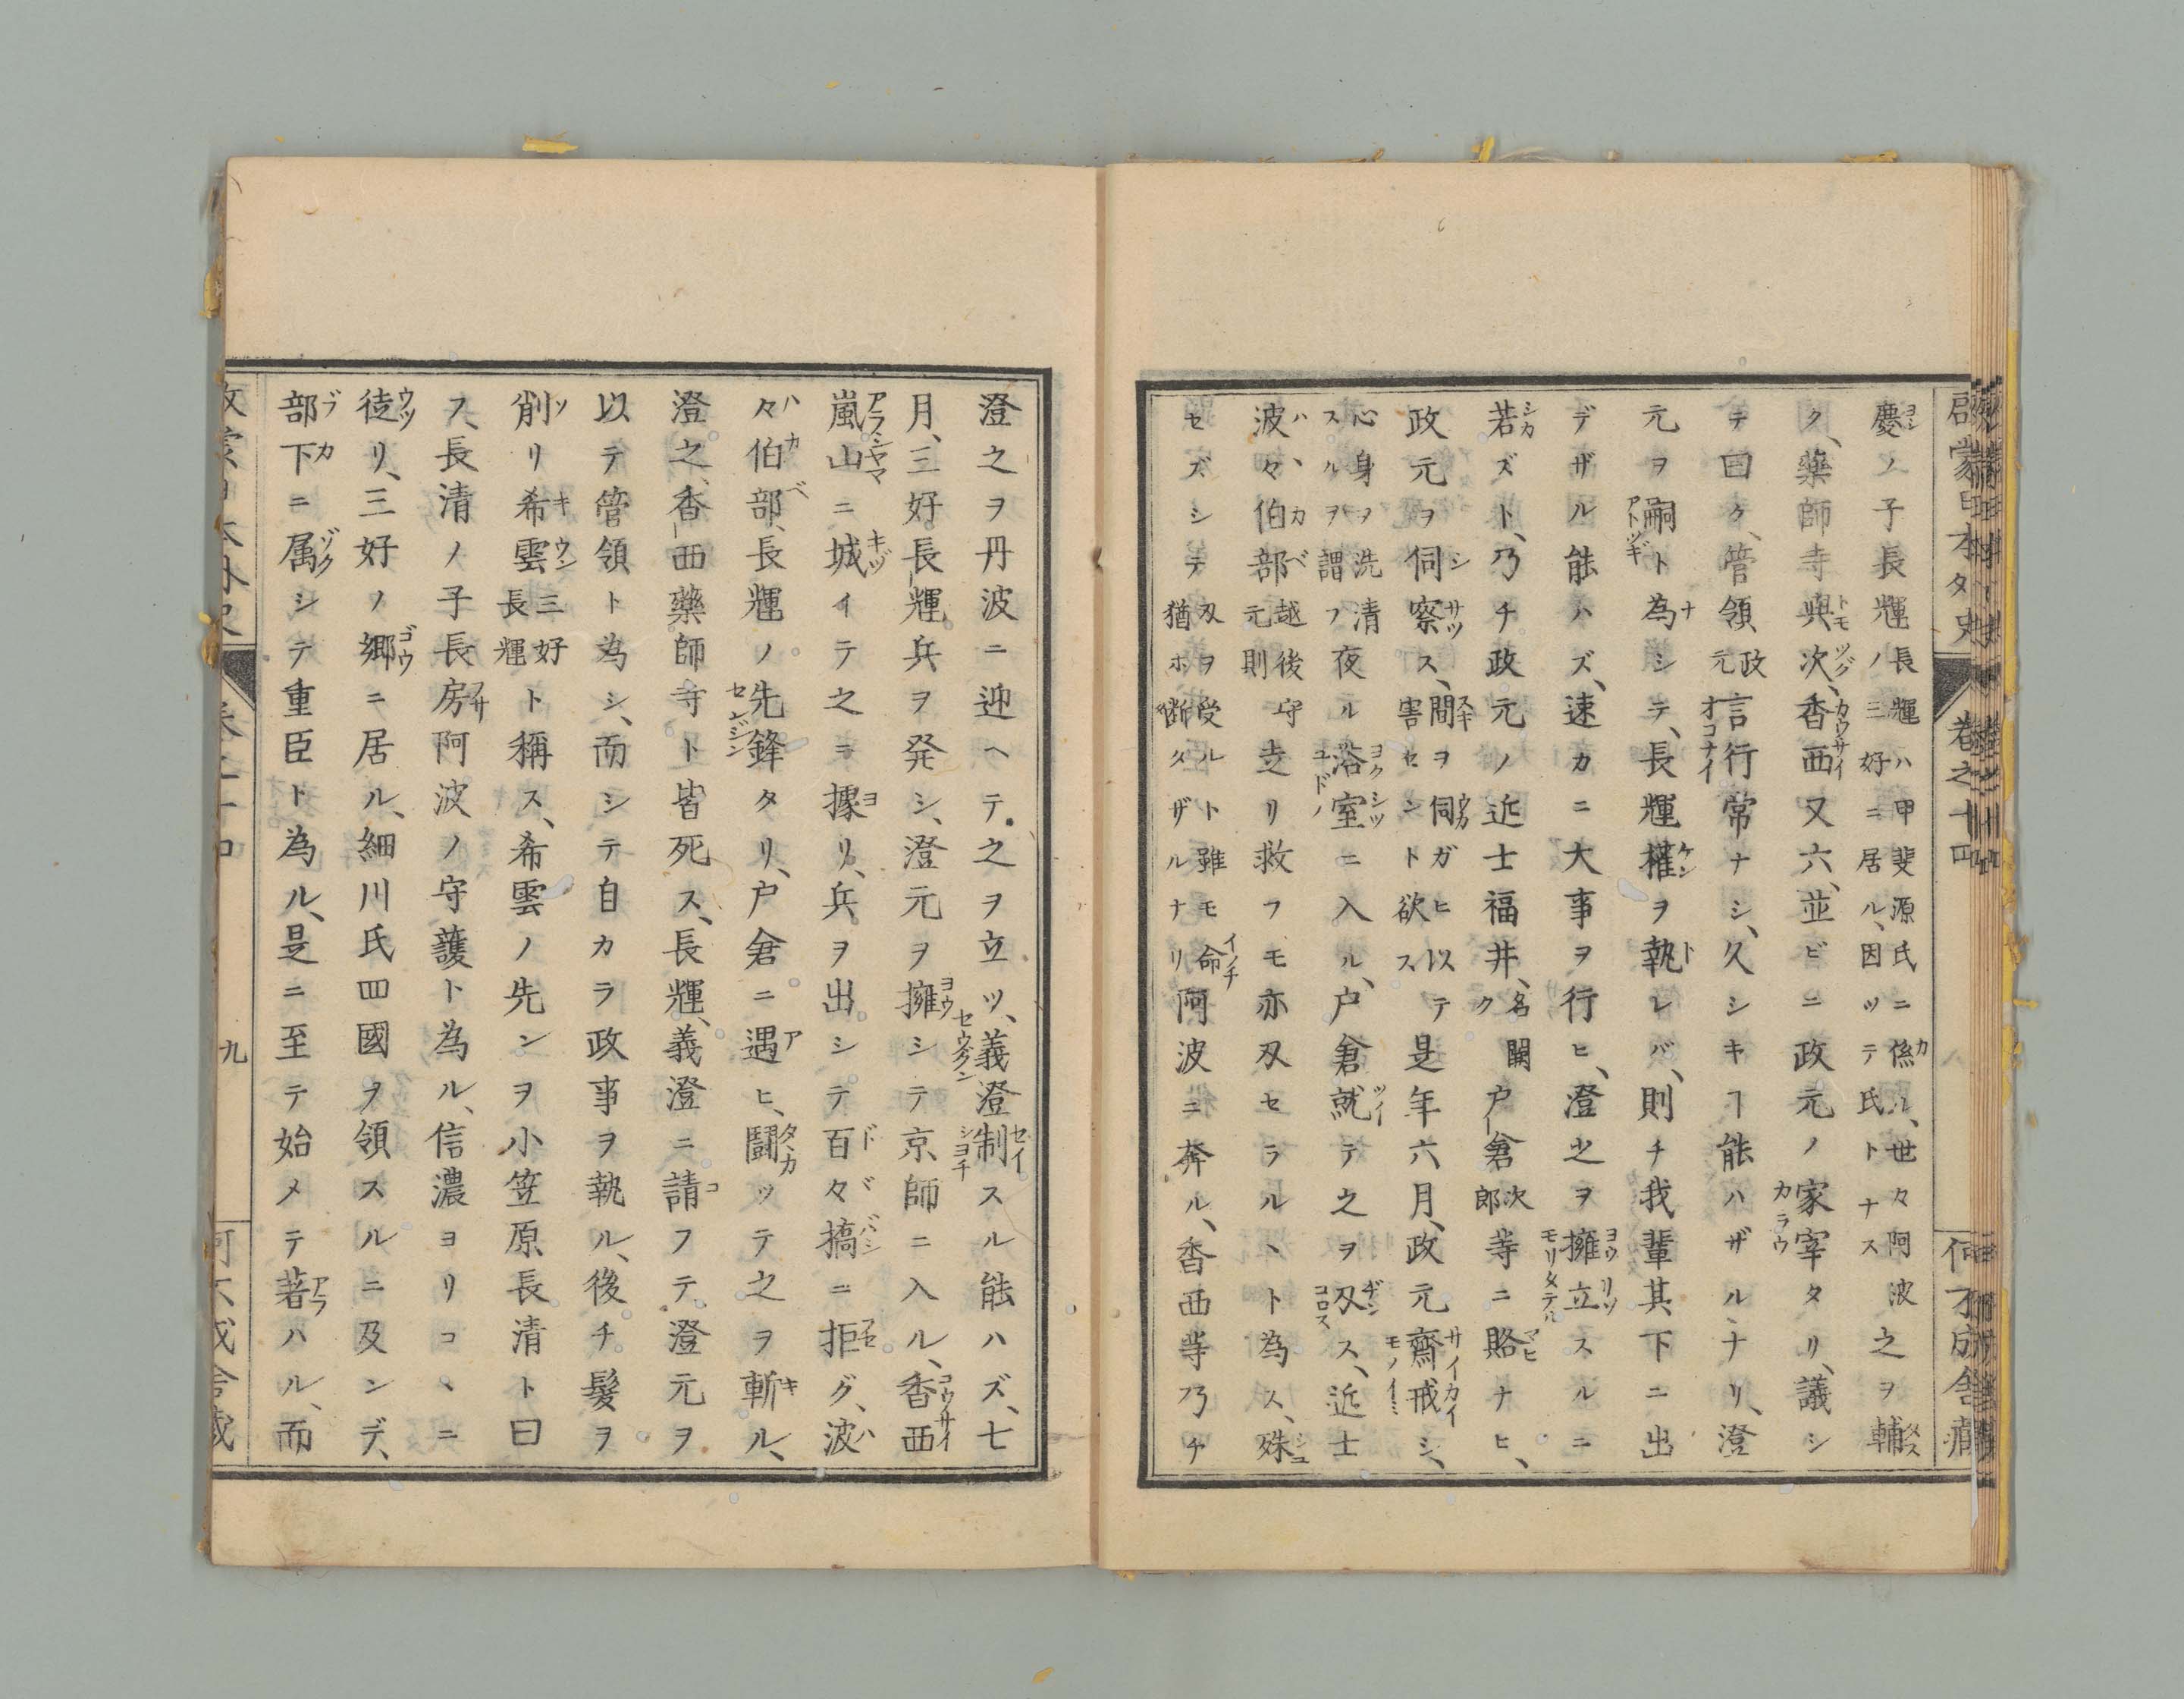 啓蒙日本外史 巻之十四 何不成舎蔵
慶ノ子長輝長輝ハ甲斐源氏ニ係ル、世々阿波三好ニ居ル、因ツテ氏トナス之ヲ輔
ク、藥師寺與次、香西又六、並ビニ政元ノ家宰タリ、議シ
テ曰ク、管領政元言行常ナシ、久シキヿ能ハザルナリ、澄
元ヲ嗣ト為シテ、長輝權ヲ執レバ、則チ我輩其下ニ出
デザル能ハズ、速カニ大事ヲ行ヒ、澄之ヲ擁立スルニ
若ズト、乃チ政元ノ近士福井、名闕ク戸倉次郎等ニ賂ナヒ、
政元ヲ伺察ス、間ヲ伺ガヒ以テ害センﾄ欲ス是年六月、政元齋戒シ、
心身ヲ洗清スルヲ謂フ夜ル浴室ニ入ル、戸倉就テ之ヲ刃ス、近士
波々伯部越後守元則走リ救フモ亦刃セラルヽト為ス、殊
セズシテ刃ヲ受ルト雖モ命猶ホ斷タザルナリ阿波ニ奔ル、香西等乃チ
澄之ヲ丹波ニ迎ヘテ之ヲ立ツ、義澄制スル能ハズ、七
月、三好長輝兵ヲ発シ、澄元ヲ擁シテ京師ニ入ル、香西
嵐山ニ城イテ之ニ據リ、兵ヲ出シテ百々搞ニ拒グ、波
々伯部、長輝ノ先鋒タリ、戸倉ニ遇ヒ、鬪ツテ之ヲ斬ル、
澄之、香西藥師寺ト皆死ス、長輝、義澄ニ請フテ、澄元ヲ
以テ管領ト為シ、而シテ自カラ政事ヲ執ル、後チ髮ヲ
削リ希雲三好長輝ト稱ス、希雲ノ先ンヲ小笠原長清ト曰
フ、長清ノ子長房阿波ノ守護ト為ル、信濃ヨリコヽニ
徒リ、三好ノ郷ニ居ル、細川氏四國ヲ領スルニ及ンデ、
部下ニ属シテ重臣ト為ル、是ニ至テ始メテ著ハル、而
九